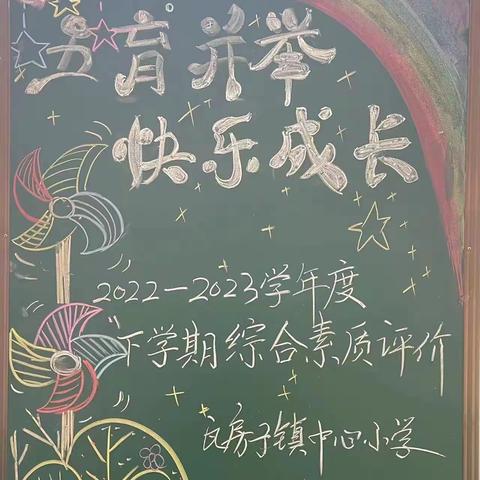 五育并举
快乐成长
2022-2023学年度
下学期综合素质评价
瓦房子镇中心小学